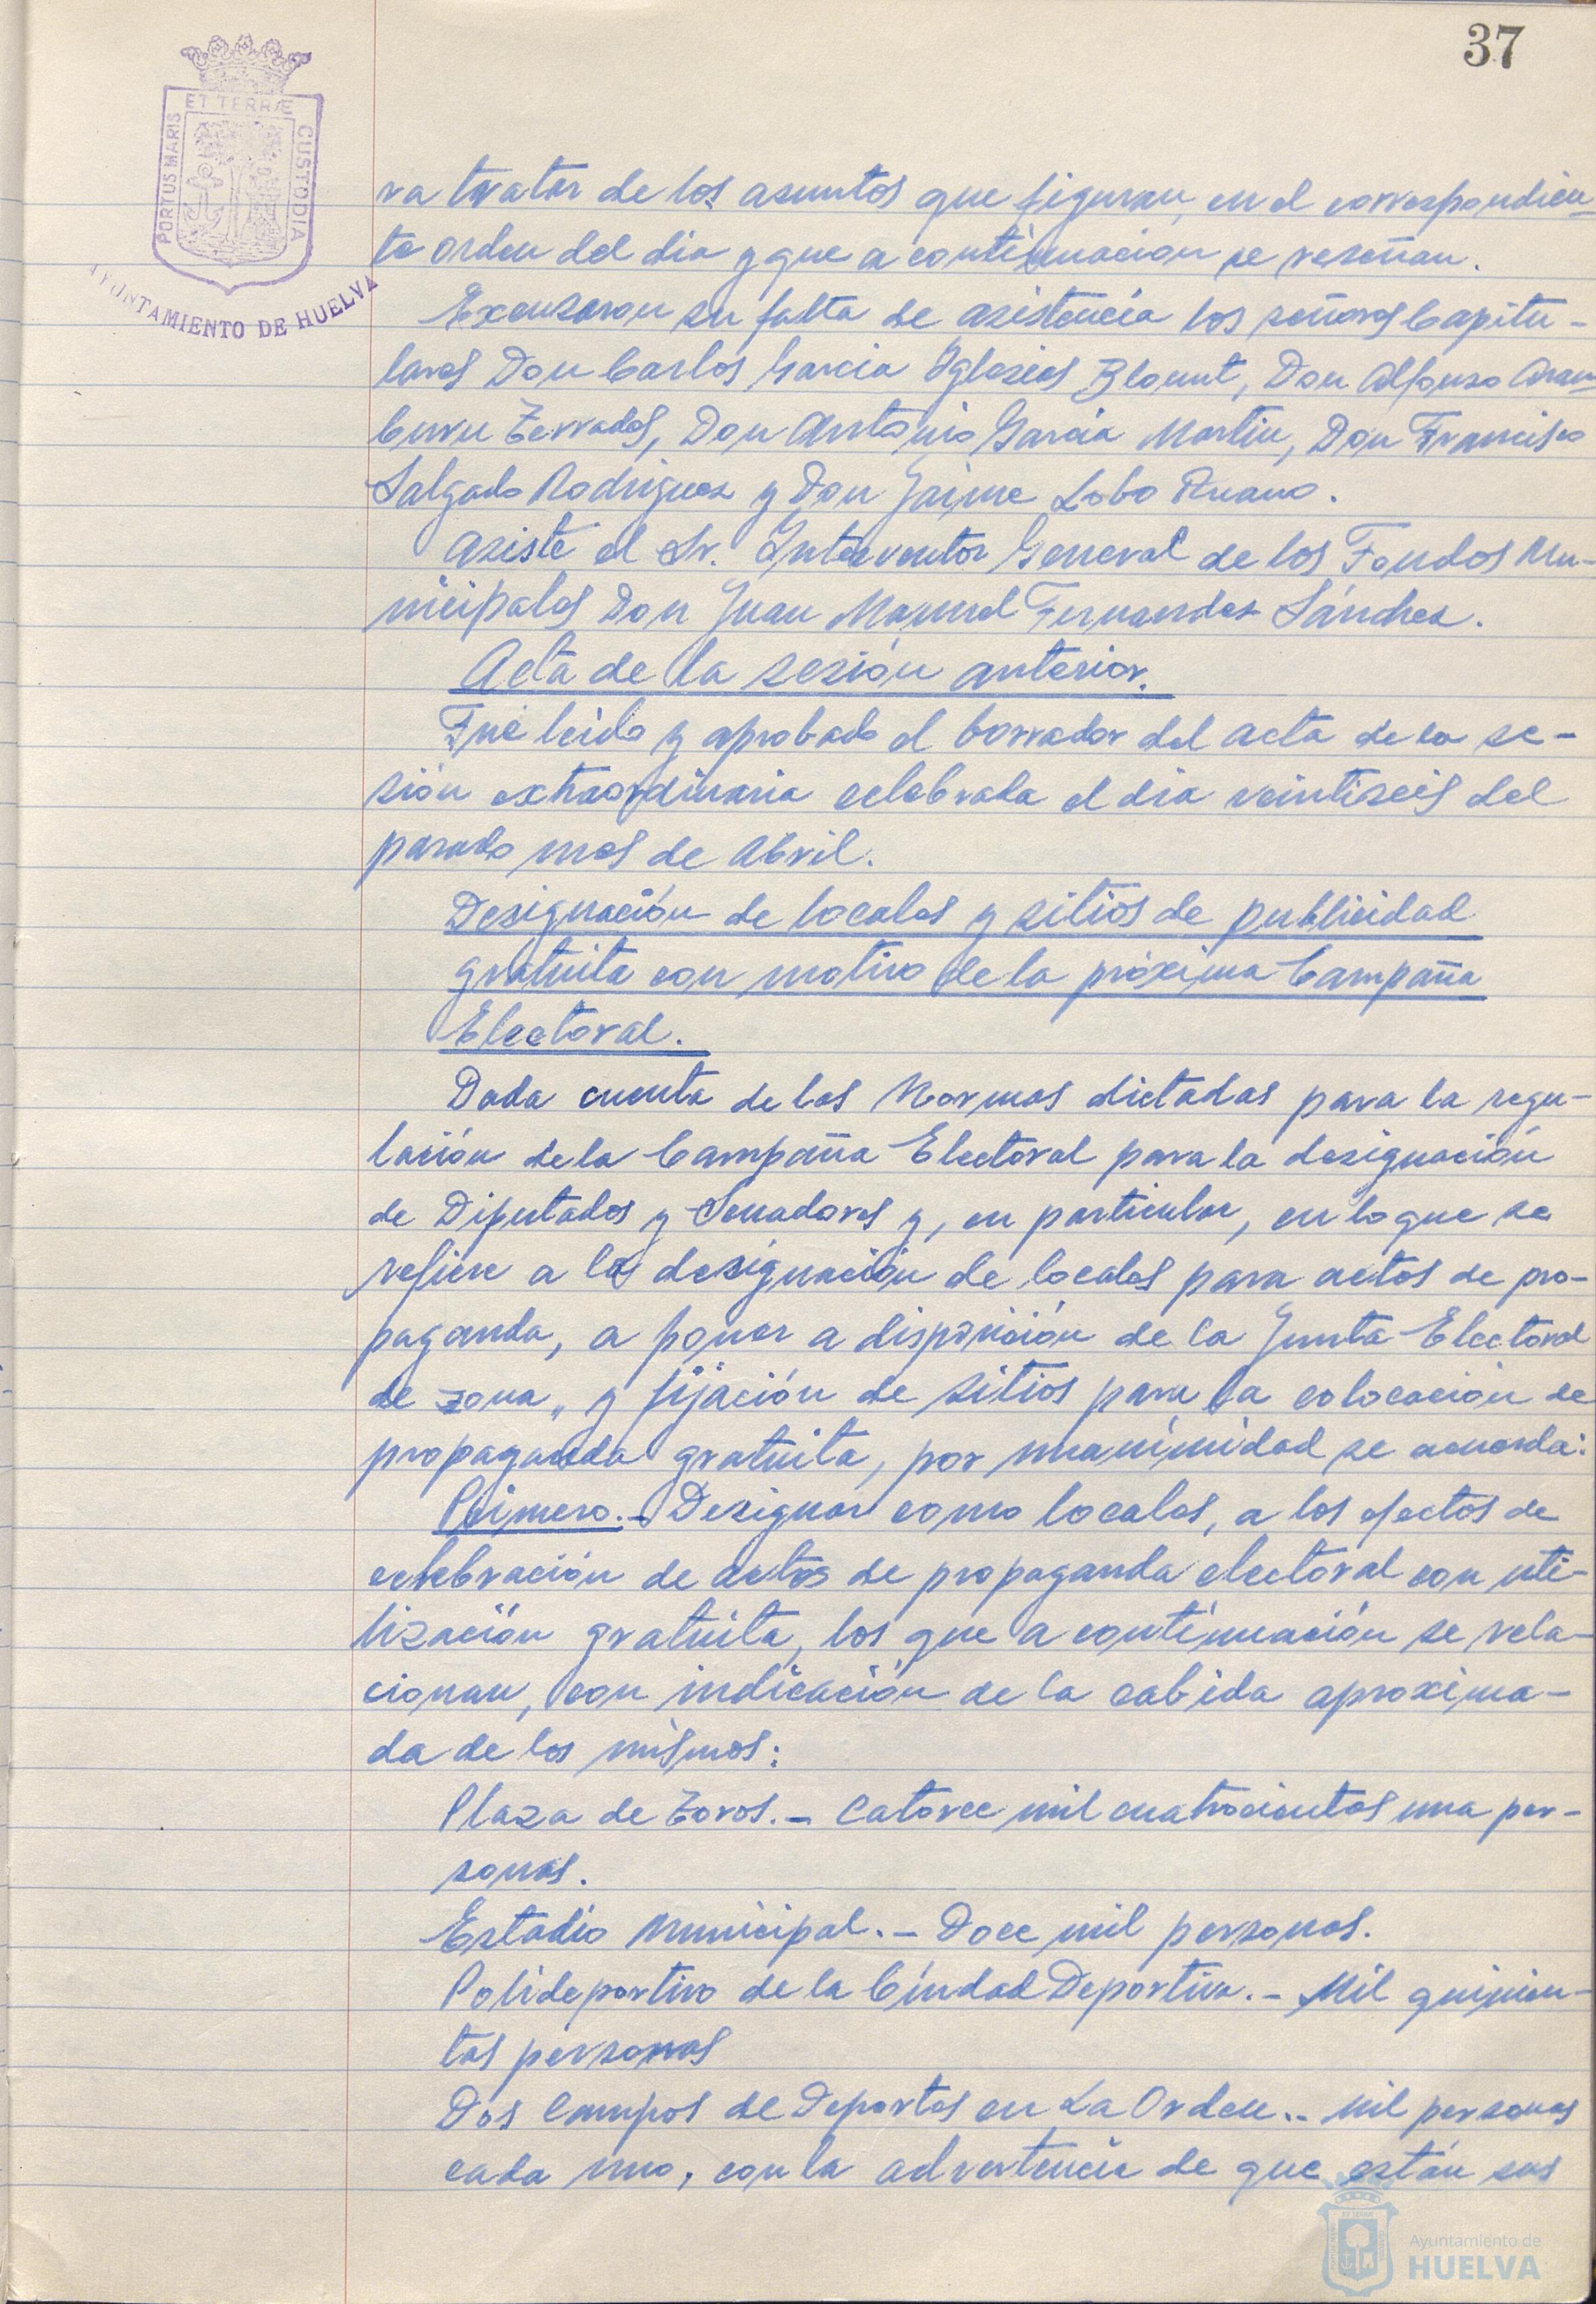 37
PORTUS MARIS ET TERRÆ CUSTODIA
AYUNTAMIENTO DE HUELVA
ra tratar de los asuntos que figuran en el correspondien-
te orden del dia y que a continuación se reseñan.
Excusaron su falta de asistencia los señores Capitu-
lares Don Carlos Garcia Iglesias Blount, Don Alfonso Aram-
buru Terrades, Don Antonio Garcia Martin, Don Francisco
Salgado Rodriguez y Don Jaime Lobo Ruano.
Asiste el Sr. Interventor General de los Fondos Mu-
nicipales Don Juan Manuel Fernandez Sánchez.
Acta de la sesión anterior.
Fué leido y aprobado el borrador del acta de la se-
sión extraordinaria celebrada el dia veintiseis del
pasado mes de Abril.
Designación de locales y sitios de publicidad
gratuita con motivo de la próxima Campaña
Electoral.
Dada cuenta de las Normas dictadas para la regu-
lación de la Campaña Electoral para la designación
de Diputados y Senadores y, en particular, en lo que se
refiere a la designación de locales para actos de pro-
paganda, a poner a disposición de la Junta Electoral
de zona,, y fijación de sitios para la colocación de
propaganda gratuita, por unanimidad se acuerda:
Primero.- Designar como locales, a los efectos de
celebración de actos de propaganda electoral con uti-
lización gratuita, los que a continuación se rela-
cionan, con indicación de la cabida aproxima-
da de los mismos:
Plaza de Toros.- Catorce mil cuatrocientas una per-
sonas.
Estadio Municipal.- Doce mil personas.
Polideportivo de la Ciudad Deportiva.- Mil quinien-
tas personas
Dos Campos de Deportes en La Orden.- mil personas
cada uno, con la advertencia de que están sus
Ayuntamiento de
HUELVA